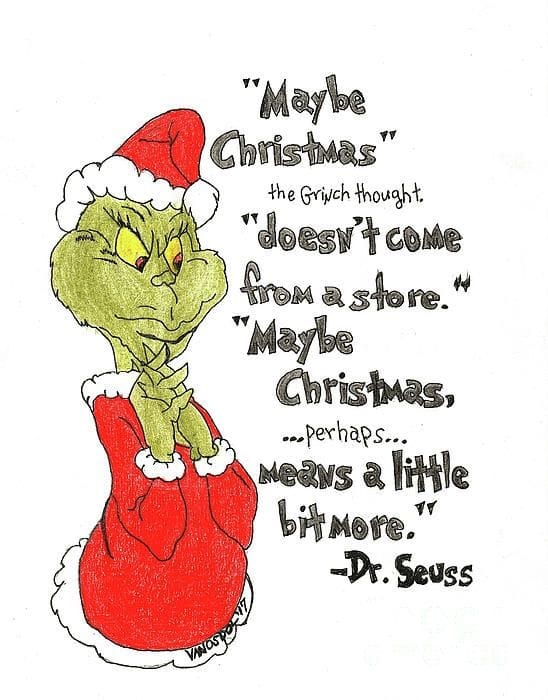 "Maybe
Christmas"
the Grinch thought.
"doesn't come
from a store."
"Maybe
Christmas,
...perhaps...
means a little
bit more."
-Dr. Seuss